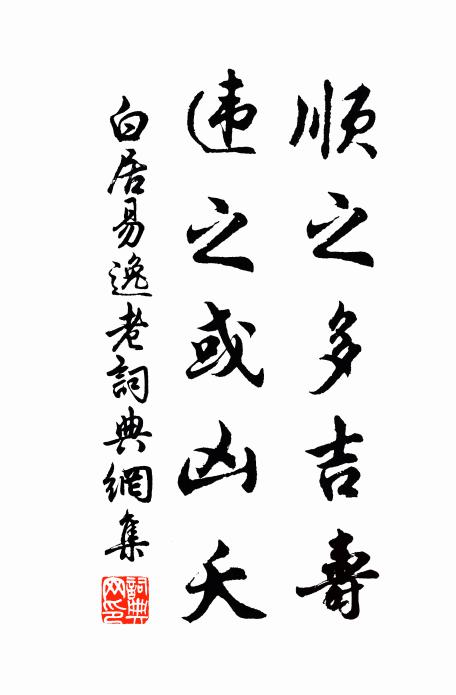 順之多吉壽
违之或凶夭
白居易逸老詞典網集
詞典网印